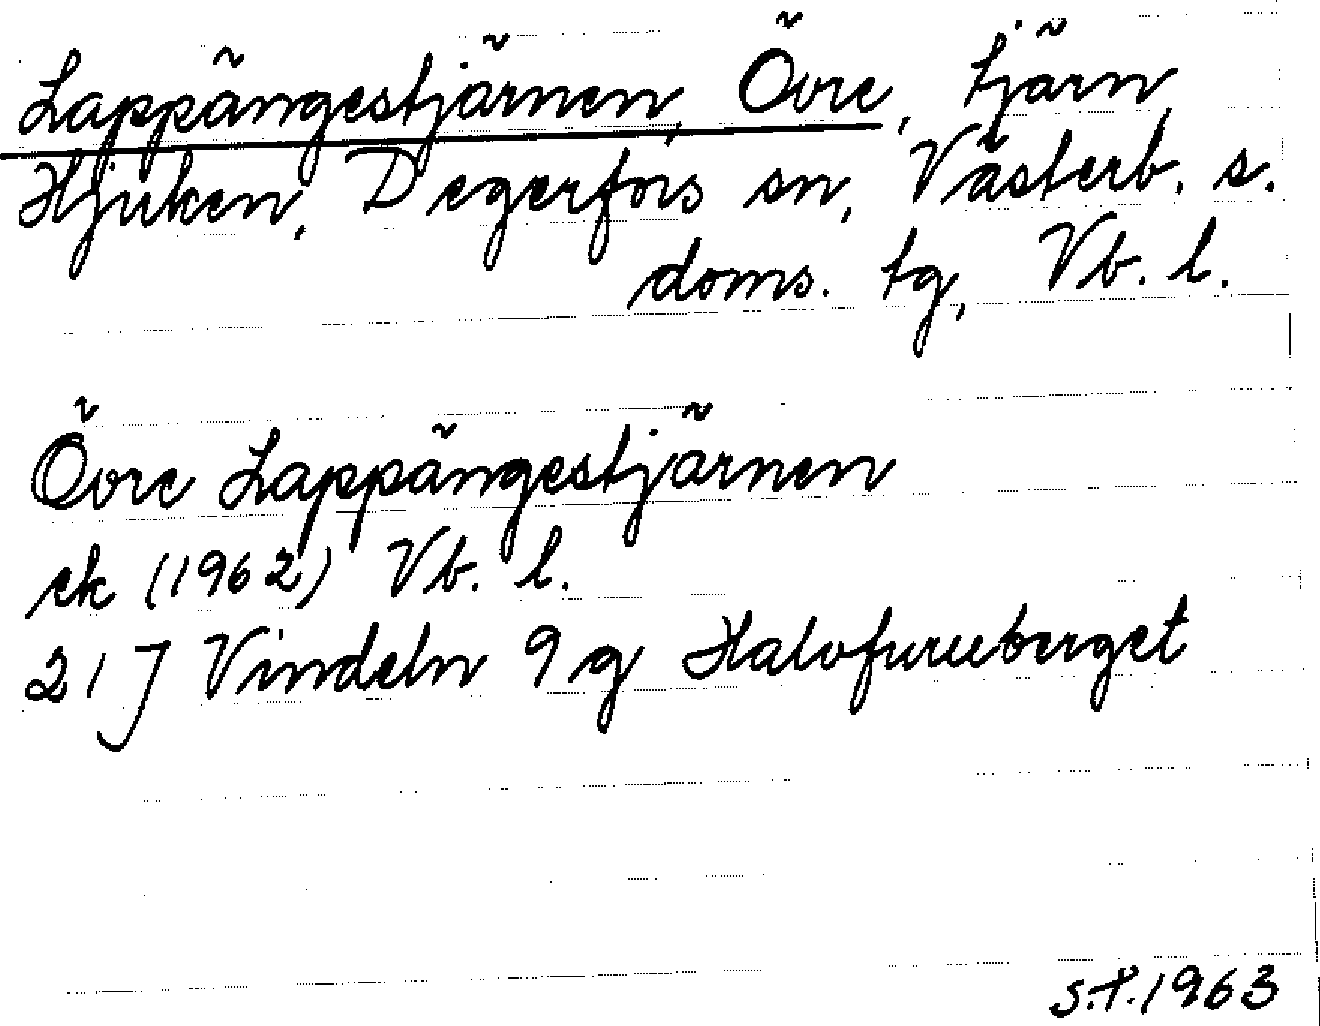 Lappängestjärnen, Övre, tjärn,
Hjuken, Degerfors sn, Västerb. s.
doms. tg, Vb. l.
Övre Lappängestjärnen
ek (1962) Vb. l.
21 J Vindeln 9 g Halvfuruberget
S.P. 1963